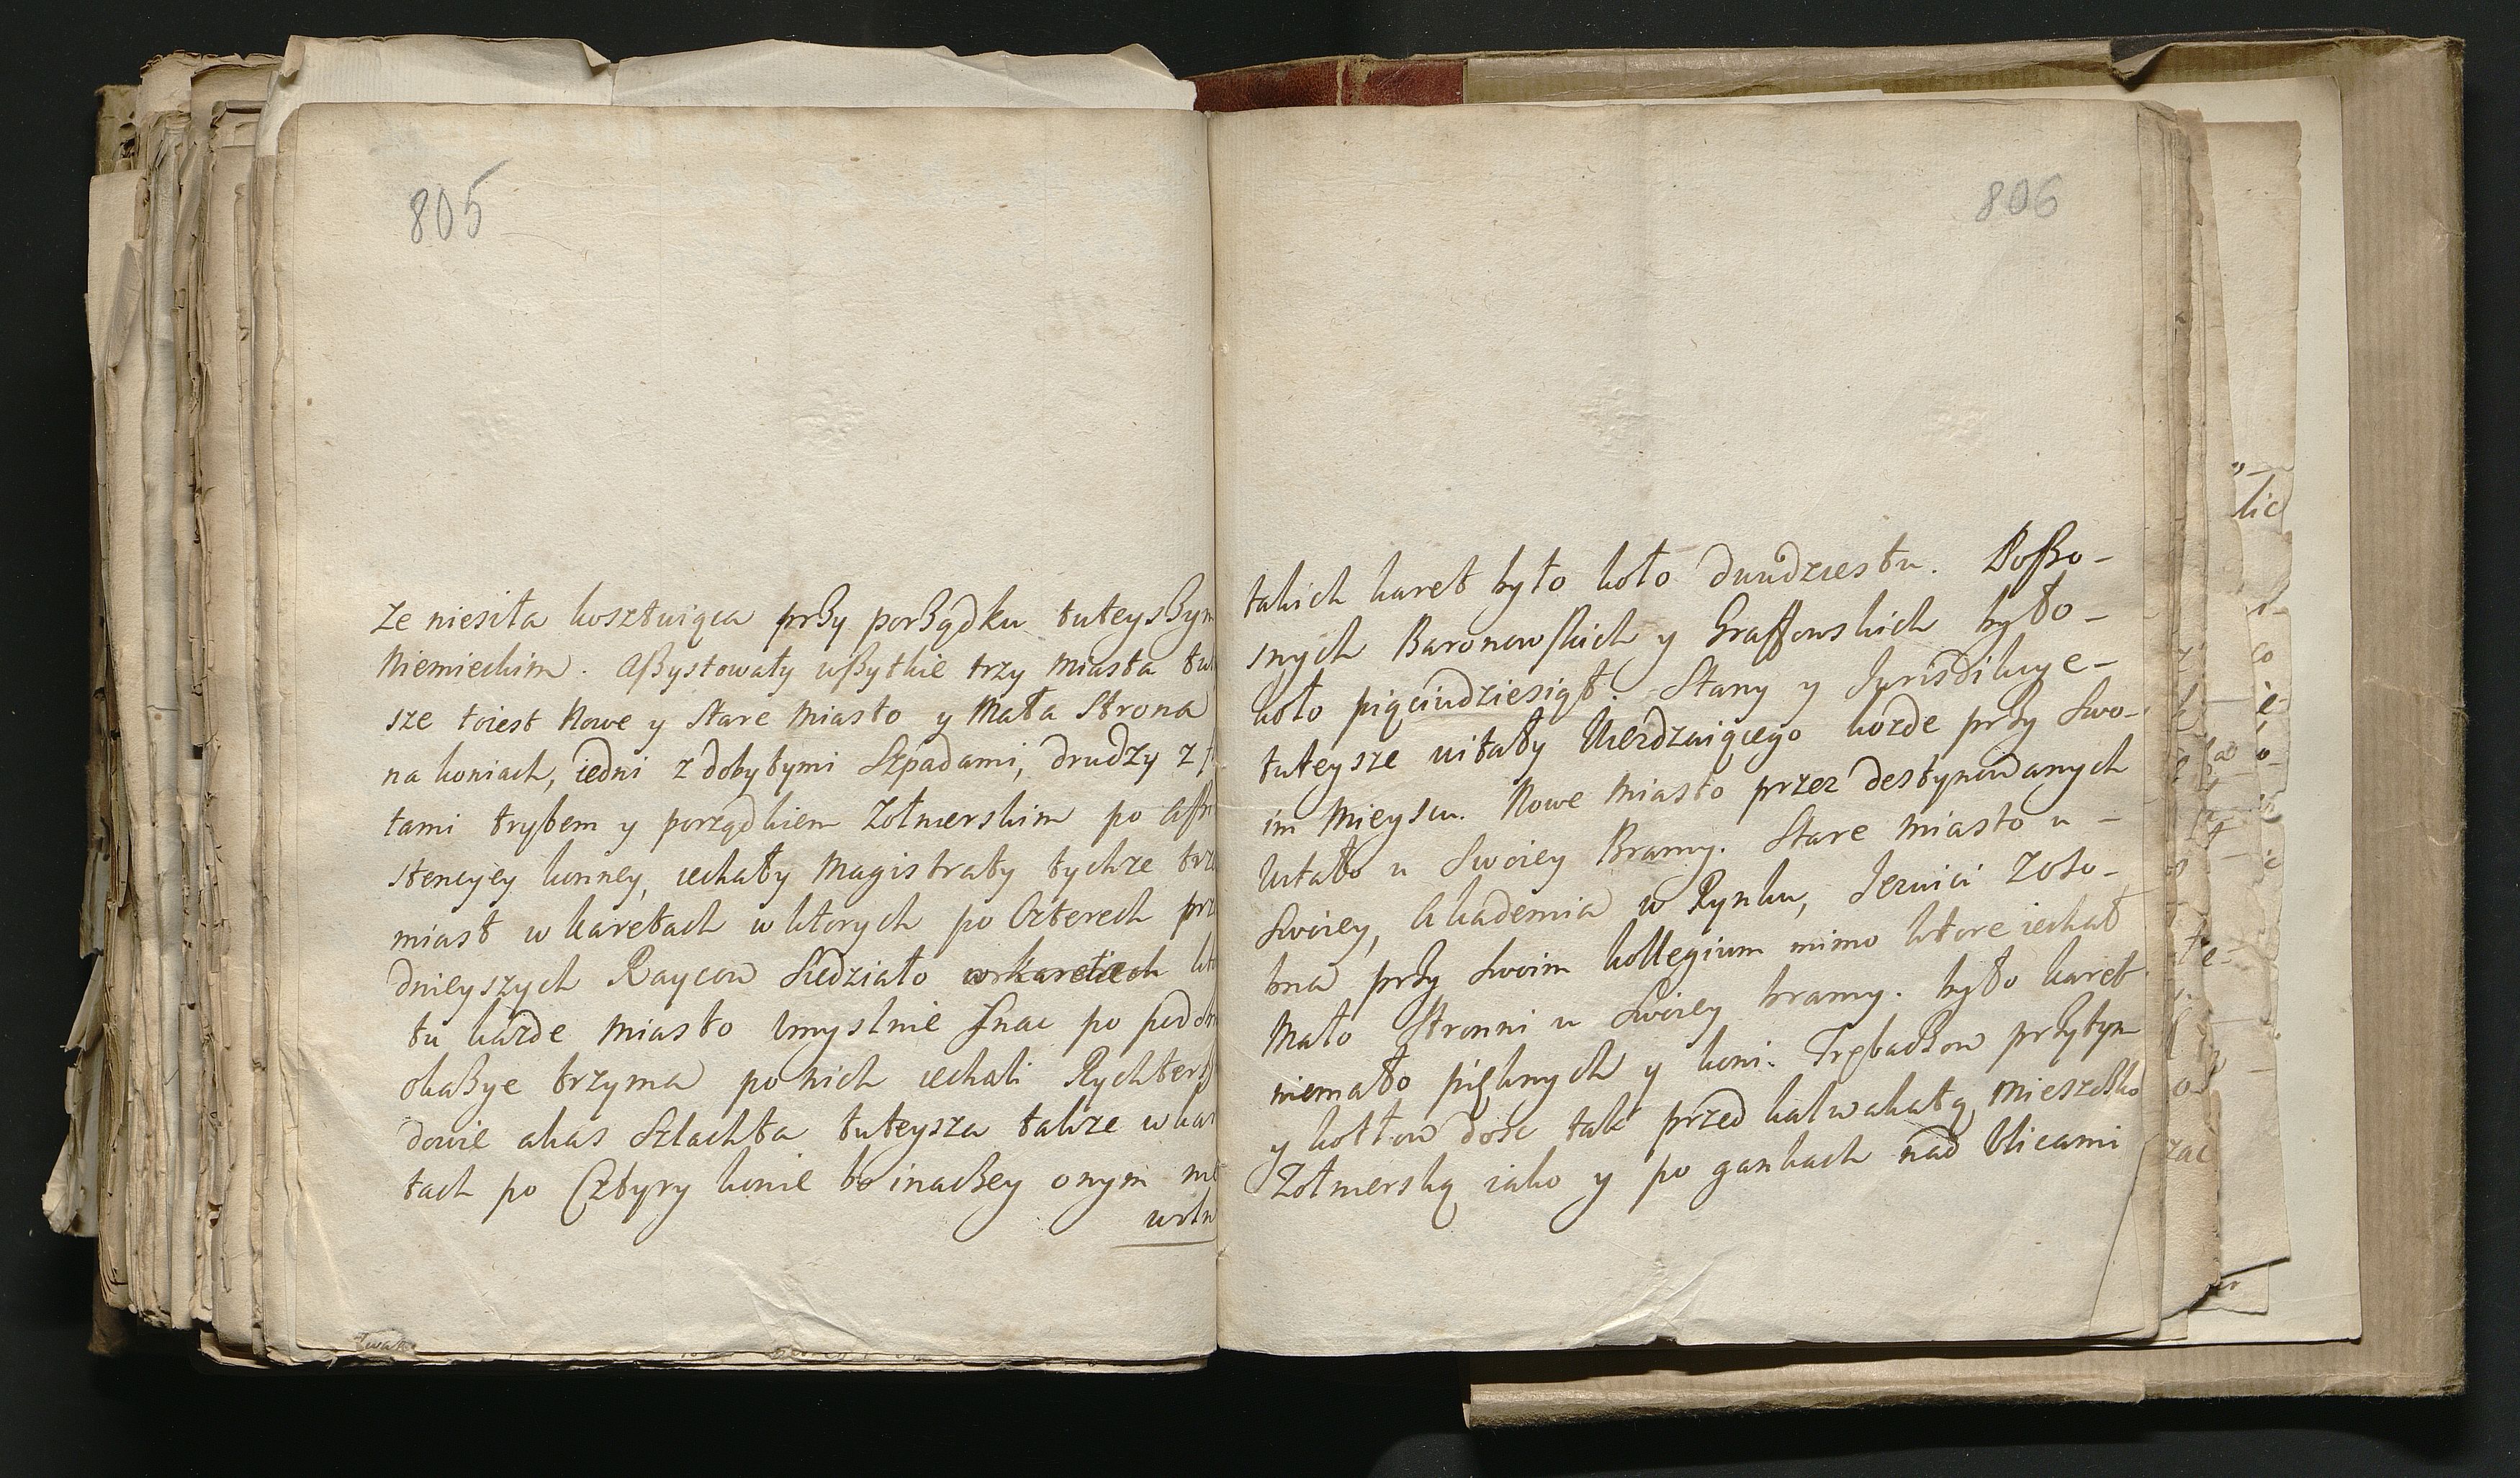 805
ze niesiła kosztuiąca przy porządku tuteyszym
Niemieckim. Assystowały wszytkie trzy Miasta
sze toiest Nowe y Stare Miasto y Mała Strona
na koniach, iedni z dobytymi Szpadami, drudzy z
tami trybem y porządkiem Zołnierskim po
stencyey konney, iechały Magistraty tychże
miast w karetach w ktorych po Czterech
dnieyszych Raycow Siedziało
tu każde Miasto Umyslnie
okazye trzyma po nich iechali
dowie akas Szlachta tuteysza także w
tach po Cztyry konie bo inaczey onym
woln
806
takich karet było koło dwudziestu. Posso-
snych Baronowskich y Graffowskich było-
koło pięciudziesiąt. Stany y Jurisdikcye-
tuteysze witały Uierdzaiącego kozde przy Swo-
im Mieyscu. Nowe Miasto przez destynowanych
Witało u Swoiey Bramy. Stare Miasto u-
Swoiey, Akademia w Rynku, Jezuici Zoso-
bna przy Swoim kollegium mimo ktore iechał
Mało Stronni u Swoiey bramy. było karet
niemało pięknych y koni. Trębaczow przytym
y kotłow dosc tak przed kalwakatą
Zołnierską iako y po gankach nad Ulicami